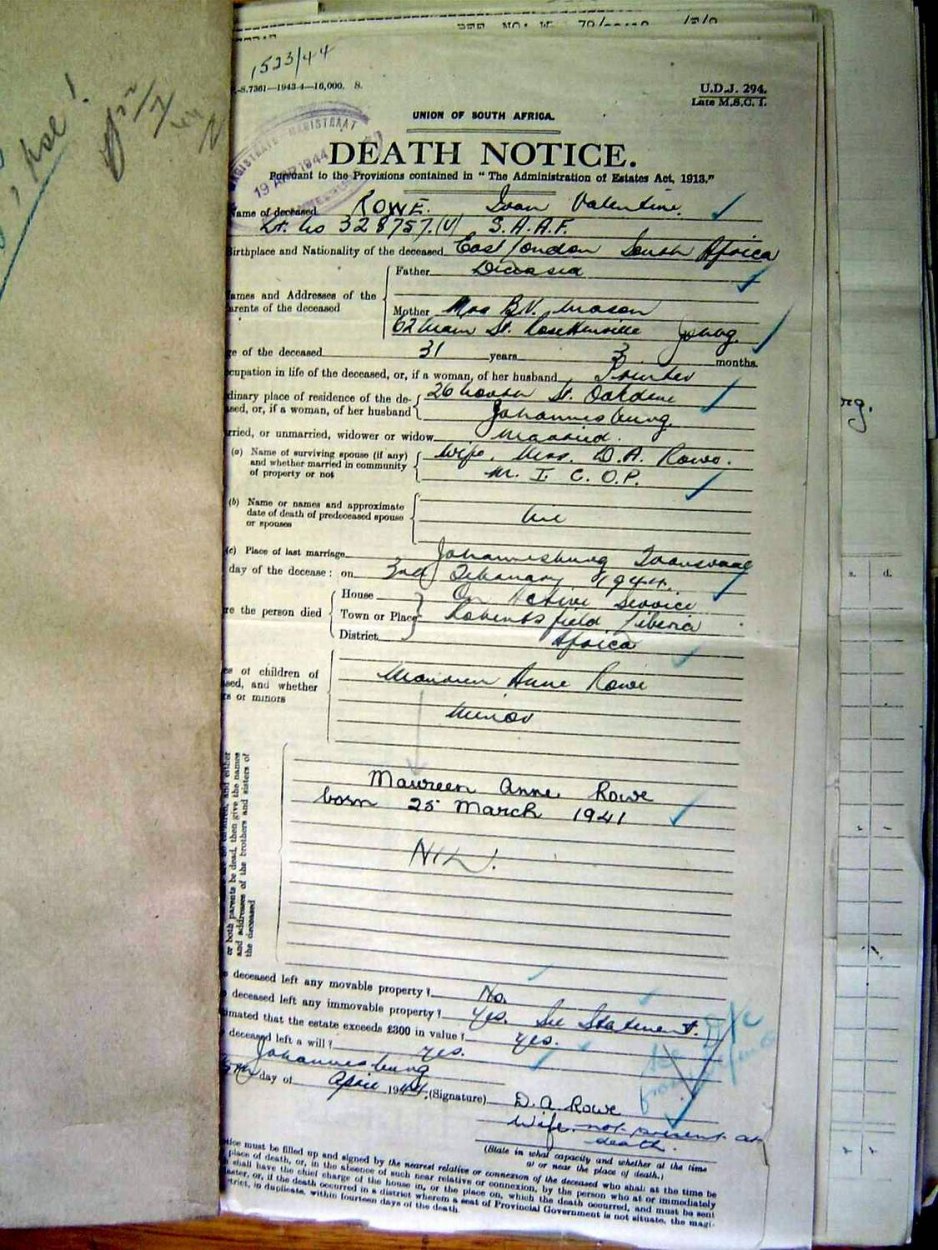 1523/44
-S.7361—1943-4—16,000. S.
U.D.J. 294.
Late M.S.C. 1.
UNION OF SOUTH AFRICA.
MAGISTRAAT
19 APR 1944
DEATH NOTICE.
Pursuant to the Provisions contained in "The Administration of Estates Act, 1913."
Name of deceased ROWE. Ivan Valentine.
Lt. No 328757.(V) S.A.A.F.
Birthplace and Nationality of the deceased East London South Africa
ames and Addresses of the arents of the deceased
Father Deceased
Mother Mrs B.V. Mason
62 Main St. Rosettenville Johbg.
ge of the deceased 31 years 3 months.
cupation in life of the deceased, or, if a woman, of her husband Printer
dinary place of residence of the de-
sed, or, if a woman, of her husband
26 North St. Oakdene
Johannesburg.
rried, or unmarried, widower or widow Married.
(a) Name of surviving spouse (if any) and whether married in community of property or not
Wife, Mrs. D.A. Rowe.
M. I. C. O. P.
(b) Name or names and approximate date of death of predeceased spouse or spouses
(c) Place of last marriage Johannesburg Transvaal
day of the decease: on 3rd February 1944.
re the person died
House On Active Service
Town or Place Robertsfield Liberia
District Africa
es of children of
sed, and whether
rs or minors
Maureen Anne Rowe
Minor
Maureen Anne Rowe
born 25 March 1941
NIL!
or both parents be dead, then give the names
and addresses of the brothers and sisters of
the deceased
deceased left any movable property? No.
deceased left any immovable property? Yes. See Statement.
imated that the estate exceeds £300 in value? Yes.
deceased left a will? Yes.
Johannesburg
day of April 1944. (Signature) D. A. Rowe
Wife. not present at
death.
(State in what capacity and whether at the time
at or near the place of death.)
tice must be filled up and signed by the nearest relative or connexion of the deceased who shall at the time be
place of death, or, in the absence of such near relative or connexion, by the person who at or immediately
shall have the chief charge of the house in, or the place on, which the death occurred, and must be sent
aster, or, if the death occurred in a district wherein a seat of Provincial Government is not situate, the magi-
trict, in duplicate, within fourteen days of the death
rg.
s. d.